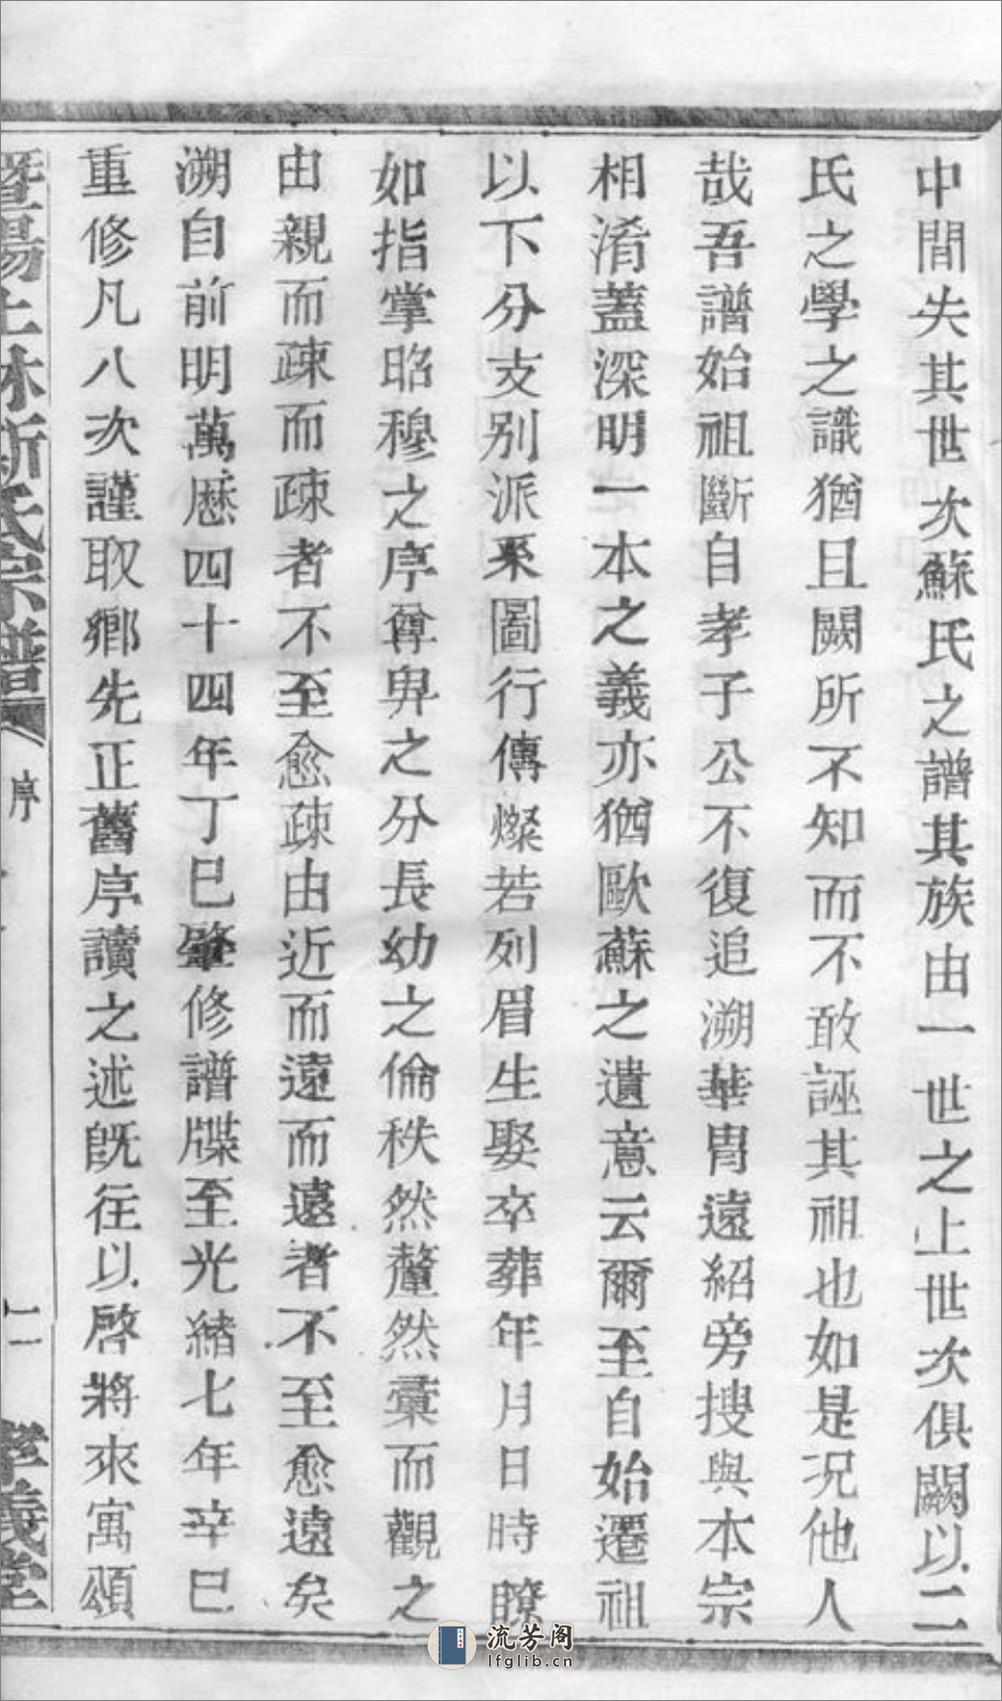 中間失其世次蘇氏之譜其族由一世之上世次俱闕以二
氏之學之識猶且闕所不知而不敢誣其祖也如是況他人
哉吾譜始祖斷自孝子公不復追溯華胄遠紹旁搜與本宗
相淆蓋深明一本之義亦猶歐蘇之遺意云爾至自始遷祖
以下分支別派系圖行傳燦若列眉生娶卒葬年月日時瞭
如指掌昭穆之序尊卑之分長幼之倫秩然釐然彙而觀之
由親而疎而疎者不至愈疎由近而遠而遠者不至愈遠矣
溯自前明萬曆四十四年丁巳肇修譜牒至光緒七年辛巳
重修凡八次謹取鄉先正舊序讀之述既往以啓將來寓頌
暨陽上林斯氏宗譜 序 二 孝義堂
流芳阁
lfglib.cn